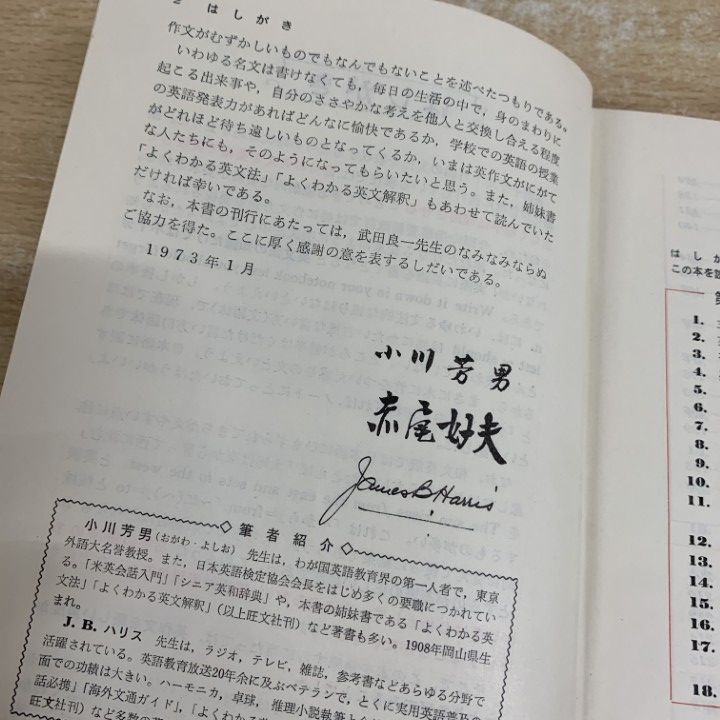 2 はしがき
作文がむずかしいものでもなんでもないことを述べたつもりである。
いわゆる名文は書けなくても，毎日の生活の中で，身のまわりに
起こる出来事や，自分のささやかな考えを他人と交換し合える程度
の英語発表力があればどんなに愉快であるか，学校での英語の授業
がどれほど待ち遠しいものとなってくるか，いまは英作文がにがて
な人たちにも，そのようになってもらいたいと思う。また，姉妹書
「よくわかる英文法」「よくわかる英文解釈」もあわせて読んでいた
だければ幸いである。
なお，本書の刊行にあたっては，武田良一先生のなみなみならぬ
ご協力を得た。ここに厚く感謝の意を表するしだいである。
1973年1月
小川芳男
赤尾好夫
James B. Harris
◇筆者紹介◇
小川芳男（おがわ・よしお）先生は，わが国英語教育界の第一人者で，東京
外語大名誉教授。また，日本英語検定協会会長をはじめ多くの要職につかれてい
る。「米英会話入門」「シニア英和辞典」や，本書の姉妹書である「よくわかる英
文法」「よくわかる英文解釈」（以上旺文社刊）など著書も多い。1908年岡山県生
まれ。
J. B. ハリス 先生は，ラジオ，テレビ，雑誌，参考書などあらゆる分野で
活躍されている。英語教育放送20年余に及ぶベテランで，とくに実用英語普及の
面での功績は大きい。ハーモニカ，卓球，推理小説執筆
話必携」「海外文通ガイド」，「よくわかる
旺文社刊）など多数の
はしが
この本を
第
1.
2.
3.
4.
5.
6.
7.
8.
9.
10.
11.
12.
13.
14.
15.
16.
17.
18.